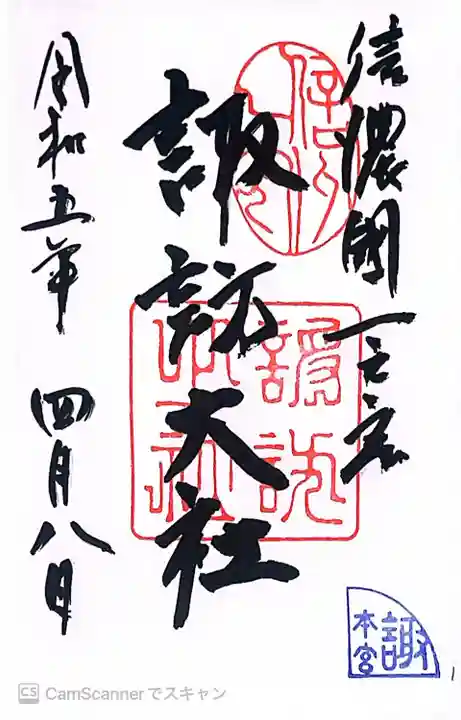 信濃國一之宮
諏訪大社
令和五年 四月八日
諏訪
本宮
諏
CS CamScannerでスキャン
1